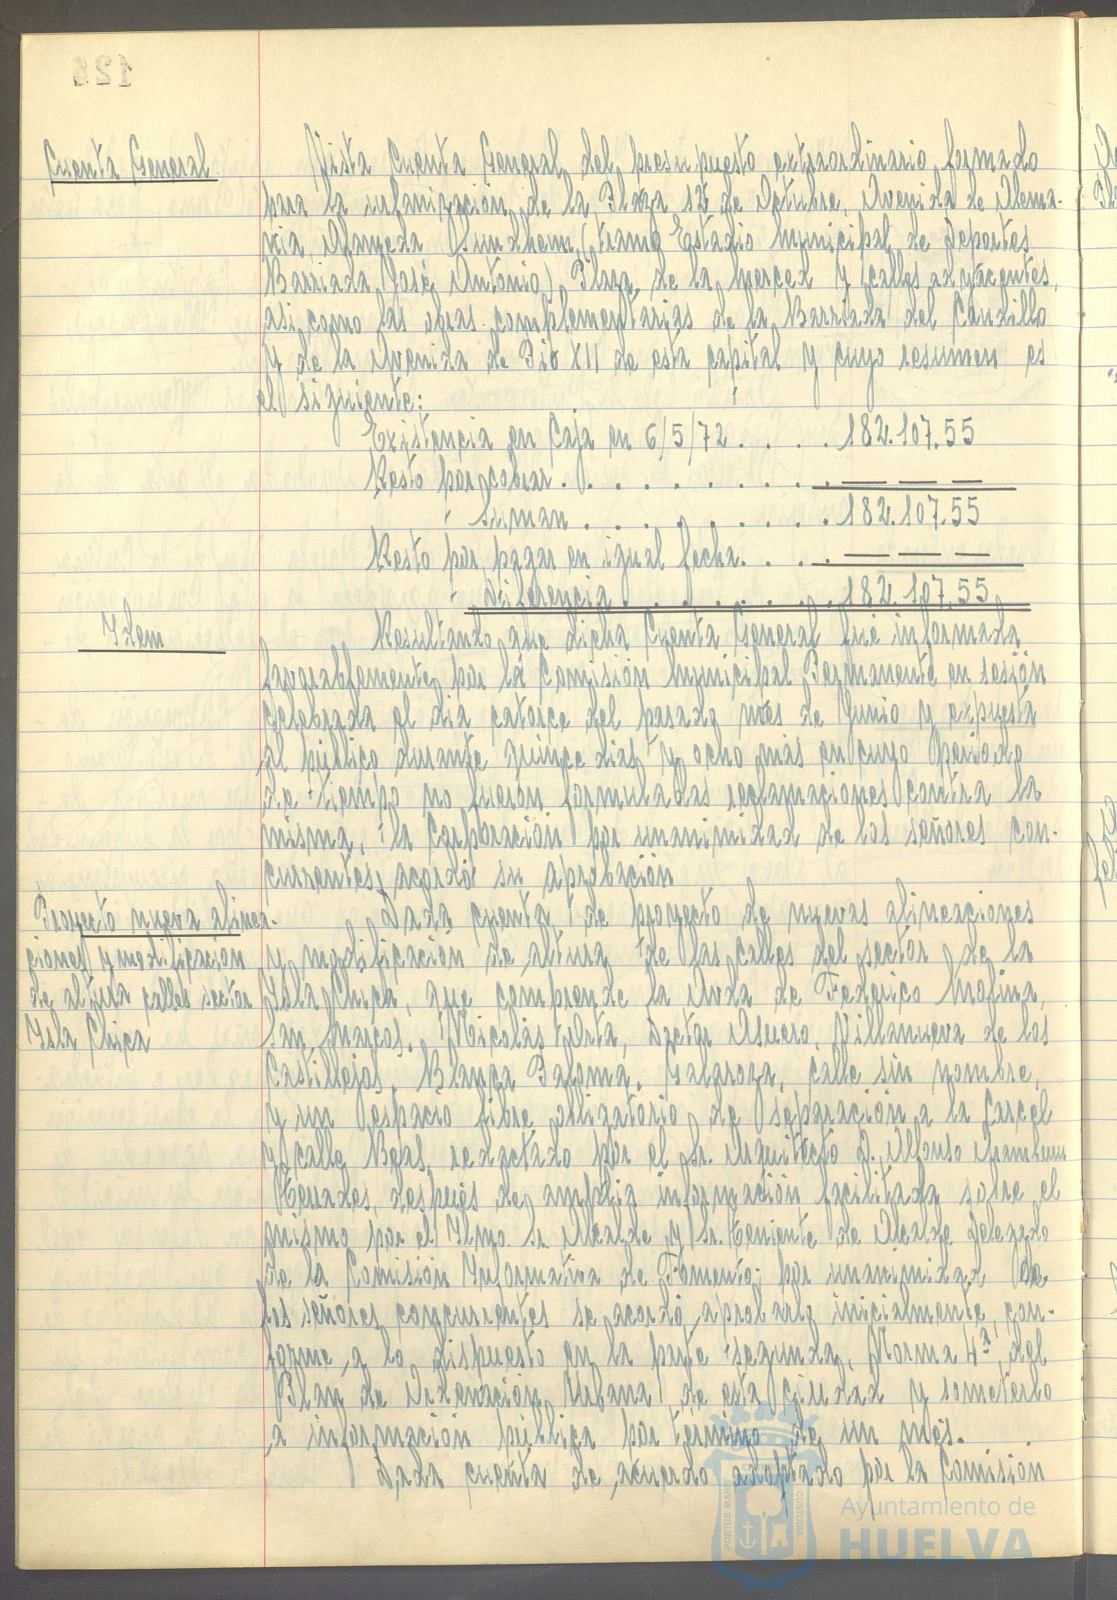 Cuenta General
Vista Cuenta General del presupuesto extraordinario formado
para la urbanización de la Plaza 12 de Octubre, Avenida de Alema-
nia Alameda Sundheim (tramo Estadio Municipal de Deportes
Barriada José Antonio) Plaza de la Merced y calles adyacentes,
asi como las obras complementarias de la Barriada del Caudillo
y de la Avenida de Pio XII de esta capital y cuyo resumen es
el siguiente:
Existencia en Caja en 6/5/72 . . . . 182.107.55
Resto por cobrar . . . . . . . . . — — —
Suman . . . . . . . . . 182.107.55
Resto por pagar en igual fecha. . . . — — —
Diferencia . . . . . . . . 182.107.55
Idem
Resultando que dicha Cuenta General fué informada
favorablemente por la Comisión Municipal Permanente en sesión
celebrada el dia catorce del pasado mes de Junio y expuesta
al público durante quince dias y ocho más en cuyo periodo
de tiempo no fueron formuladas reclamaciones contra la
misma, la Corporación por unanimidad de los señores con-
currentes, acordó su aprobación
Proyecto nueva alinea-
ciones y modificación
de altura calles sector
Isla Chica
Dada cuenta de proyecto de nuevas alineaciones
y modificación de altura de las calles del sector de la
Isla Chica, que comprende la Avda de Federico Molina,
San Marcos, Nicolás Orta, Doctor Asuero, Villanueva de los
Castillejos, Blanca Paloma, Galaroza, calle sin nombre,
y un espacio libre obligatorio de separación a la Carcel
y calle Beas, redactado por el Sr. Arquitecto D. Alfonso Aramburu
Terrades, después de amplia información facilitada sobre el
mismo por el Ilmo. Sr. Alcalde y Sr. Teniente de Alcalde Delegado
de la Comisión Informativa de Fomento; por unanimidad de
los señores concurrentes se acordó aprobarlo inicialmente, con-
forme a lo dispuesto en la parte segunda, Norma 4ª, del
Plan de Ordenación Urbana de esta Ciudad y someterlo
a información pública por término de un mes.
Dada cuenta de acuerdo adoptado por la Comisión
PORTUS MARIS
CUSTODIA
Ayuntamiento de
HUELVA